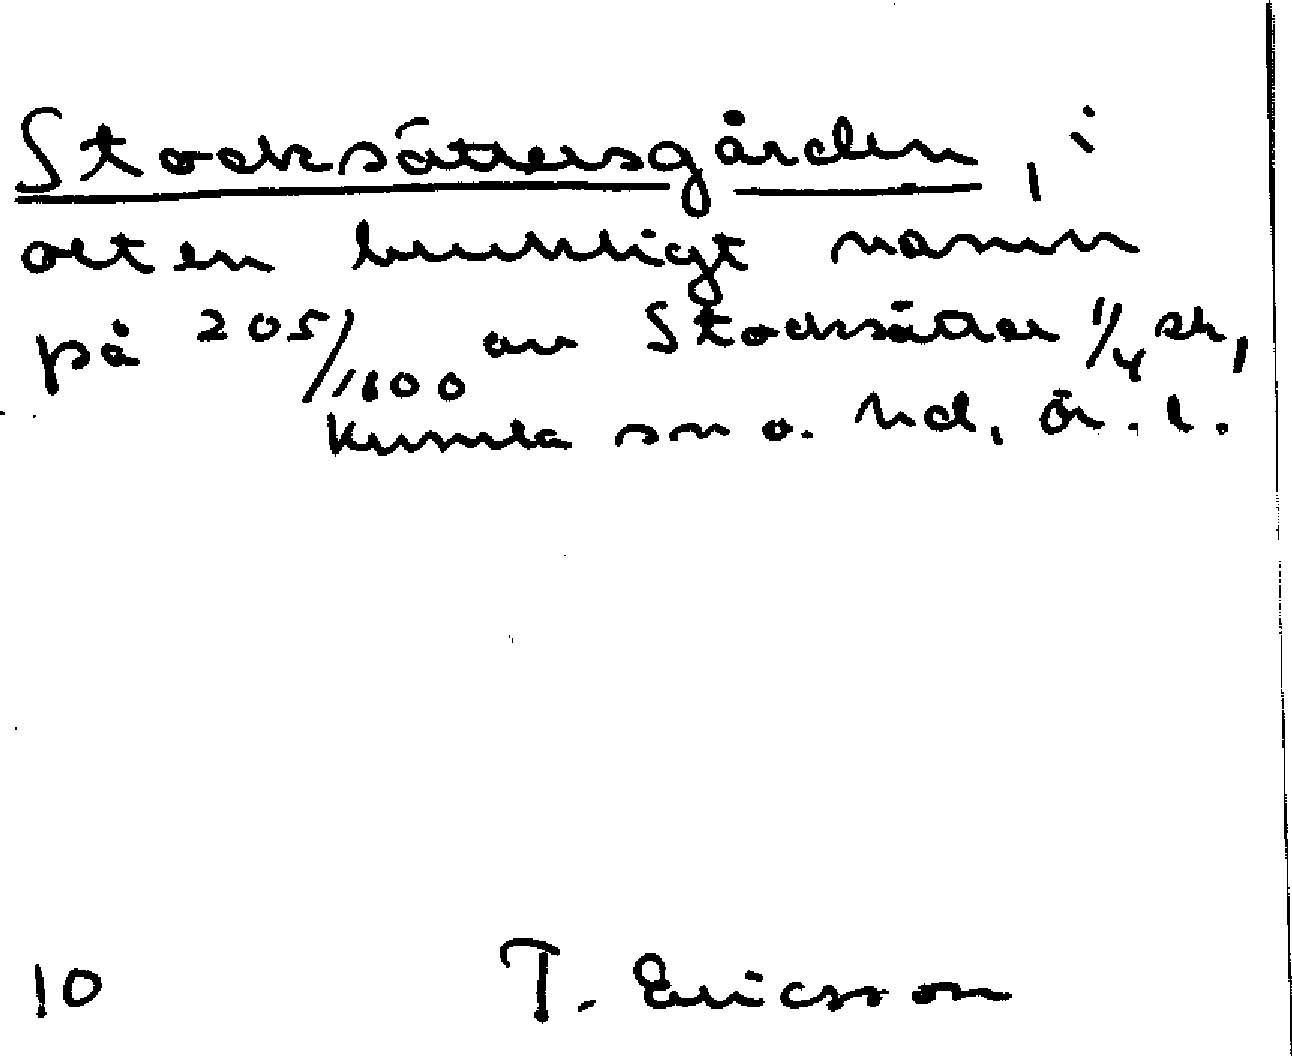 Stocksättersgården, i
orten brukligt namn
på 205/1600 av Stocksätter 1/4 sk,
Kumla sn o. hd, Ör. l.
10 T. Ericsson